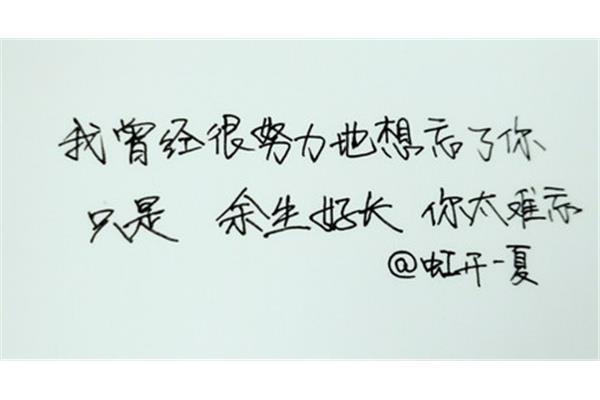 我曾经很努力地想忘了你
只是 余生好长 你太难忘
@虹开一夏